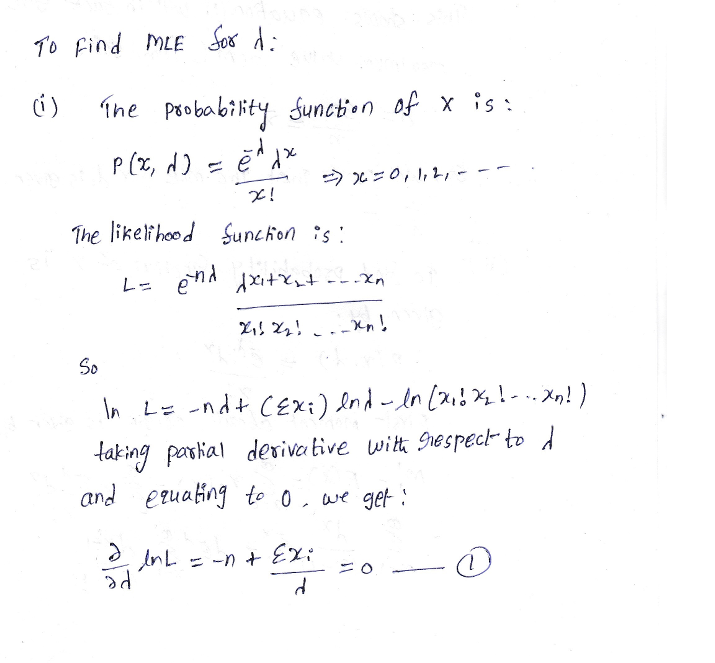 To Find MLE for λ:
(i) The probability function of x is:
P(x, λ) = e^-λ λ^x / x! ⇒ x = 0, 1, 2, - - - .
The likelihood function is:
L = e^-nλ λ^x₁+x₂+ - - -.xₙ / x₁! x₂! - . - xₙ!
So
ln L = -nλ + (Σxᵢ) lnλ - ln (x₁! x₂! - .. xₙ!)
taking partial derivative with respect to λ
and equating to 0, we get:
∂/∂λ lnL = -n + Σxᵢ/λ = 0 — ①